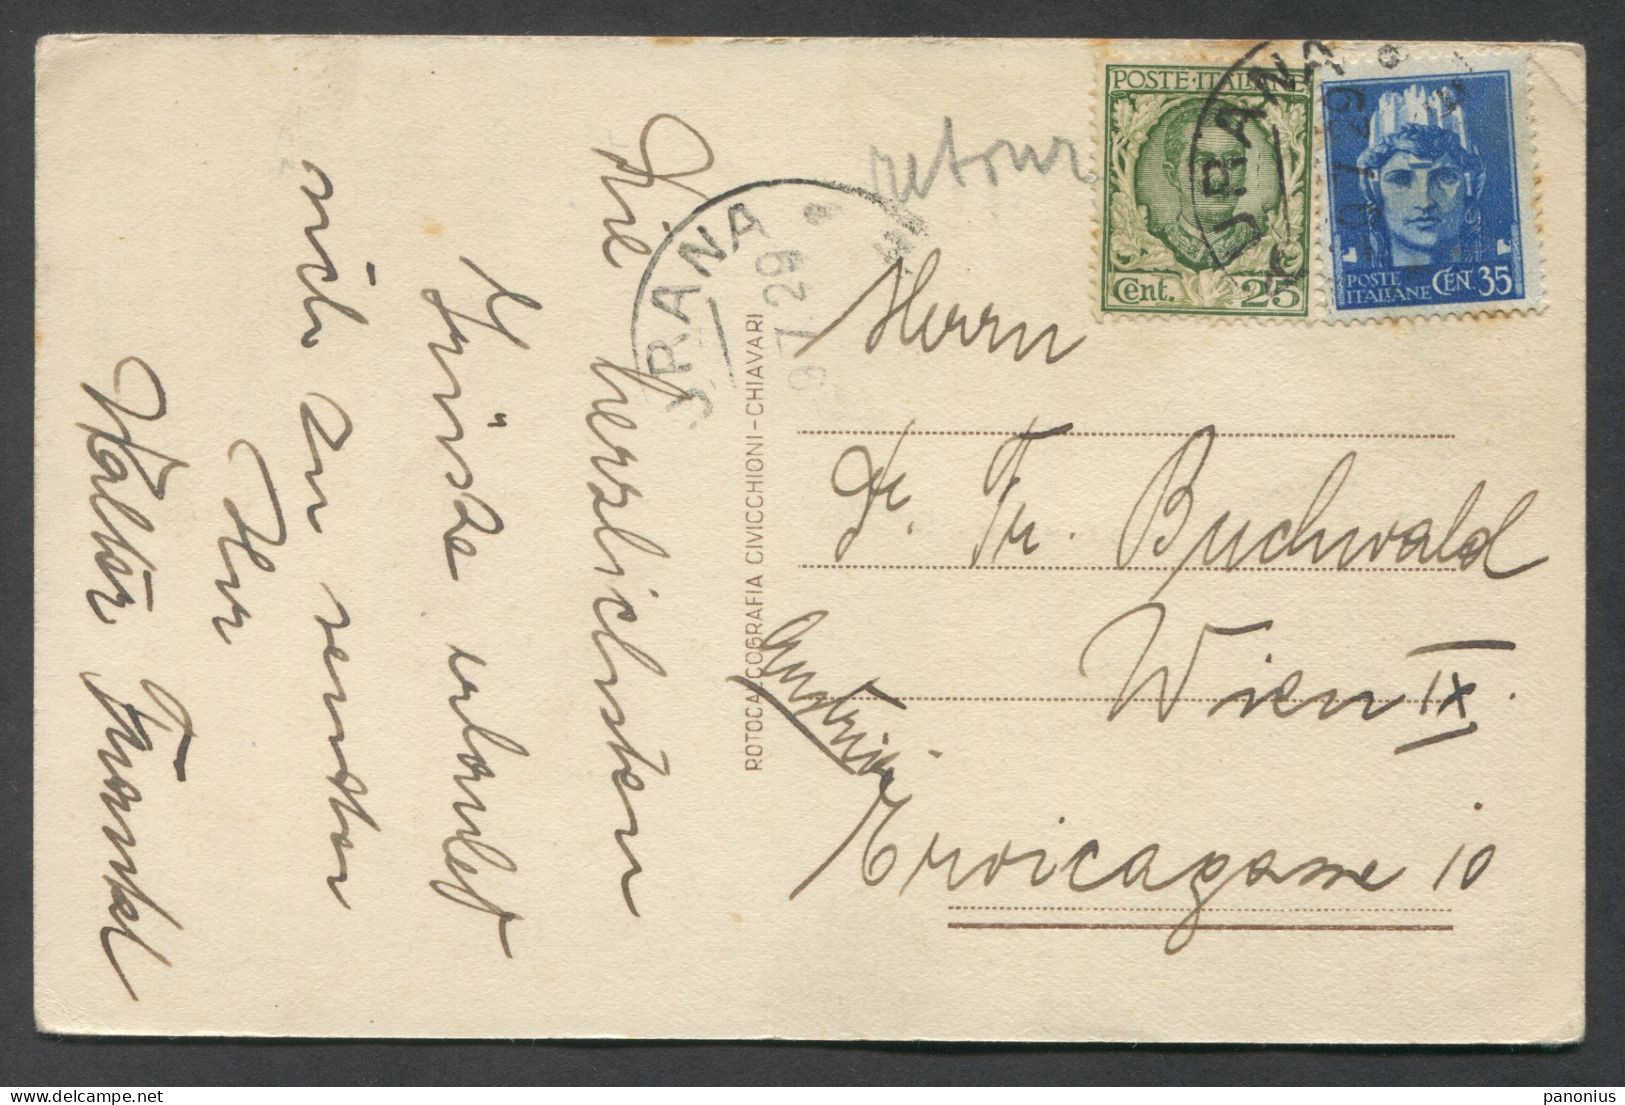 Die herzlichsten
Grüsse erlaubt
sich zu senden
Ihr
Walter Fraenkel
retour
Herrn
Dr. Fr. Buchwald
Wien IX.
Austria
Servicagasse 10
ROTOCALCOGRAFIA CIVICCHIONI - CHIAVARI
URANA
9 7 29
POSTE·ITALIANE
Cent. 25
POSTE
ITALIANE CENT. 35
URANA
9 7 29
panonius